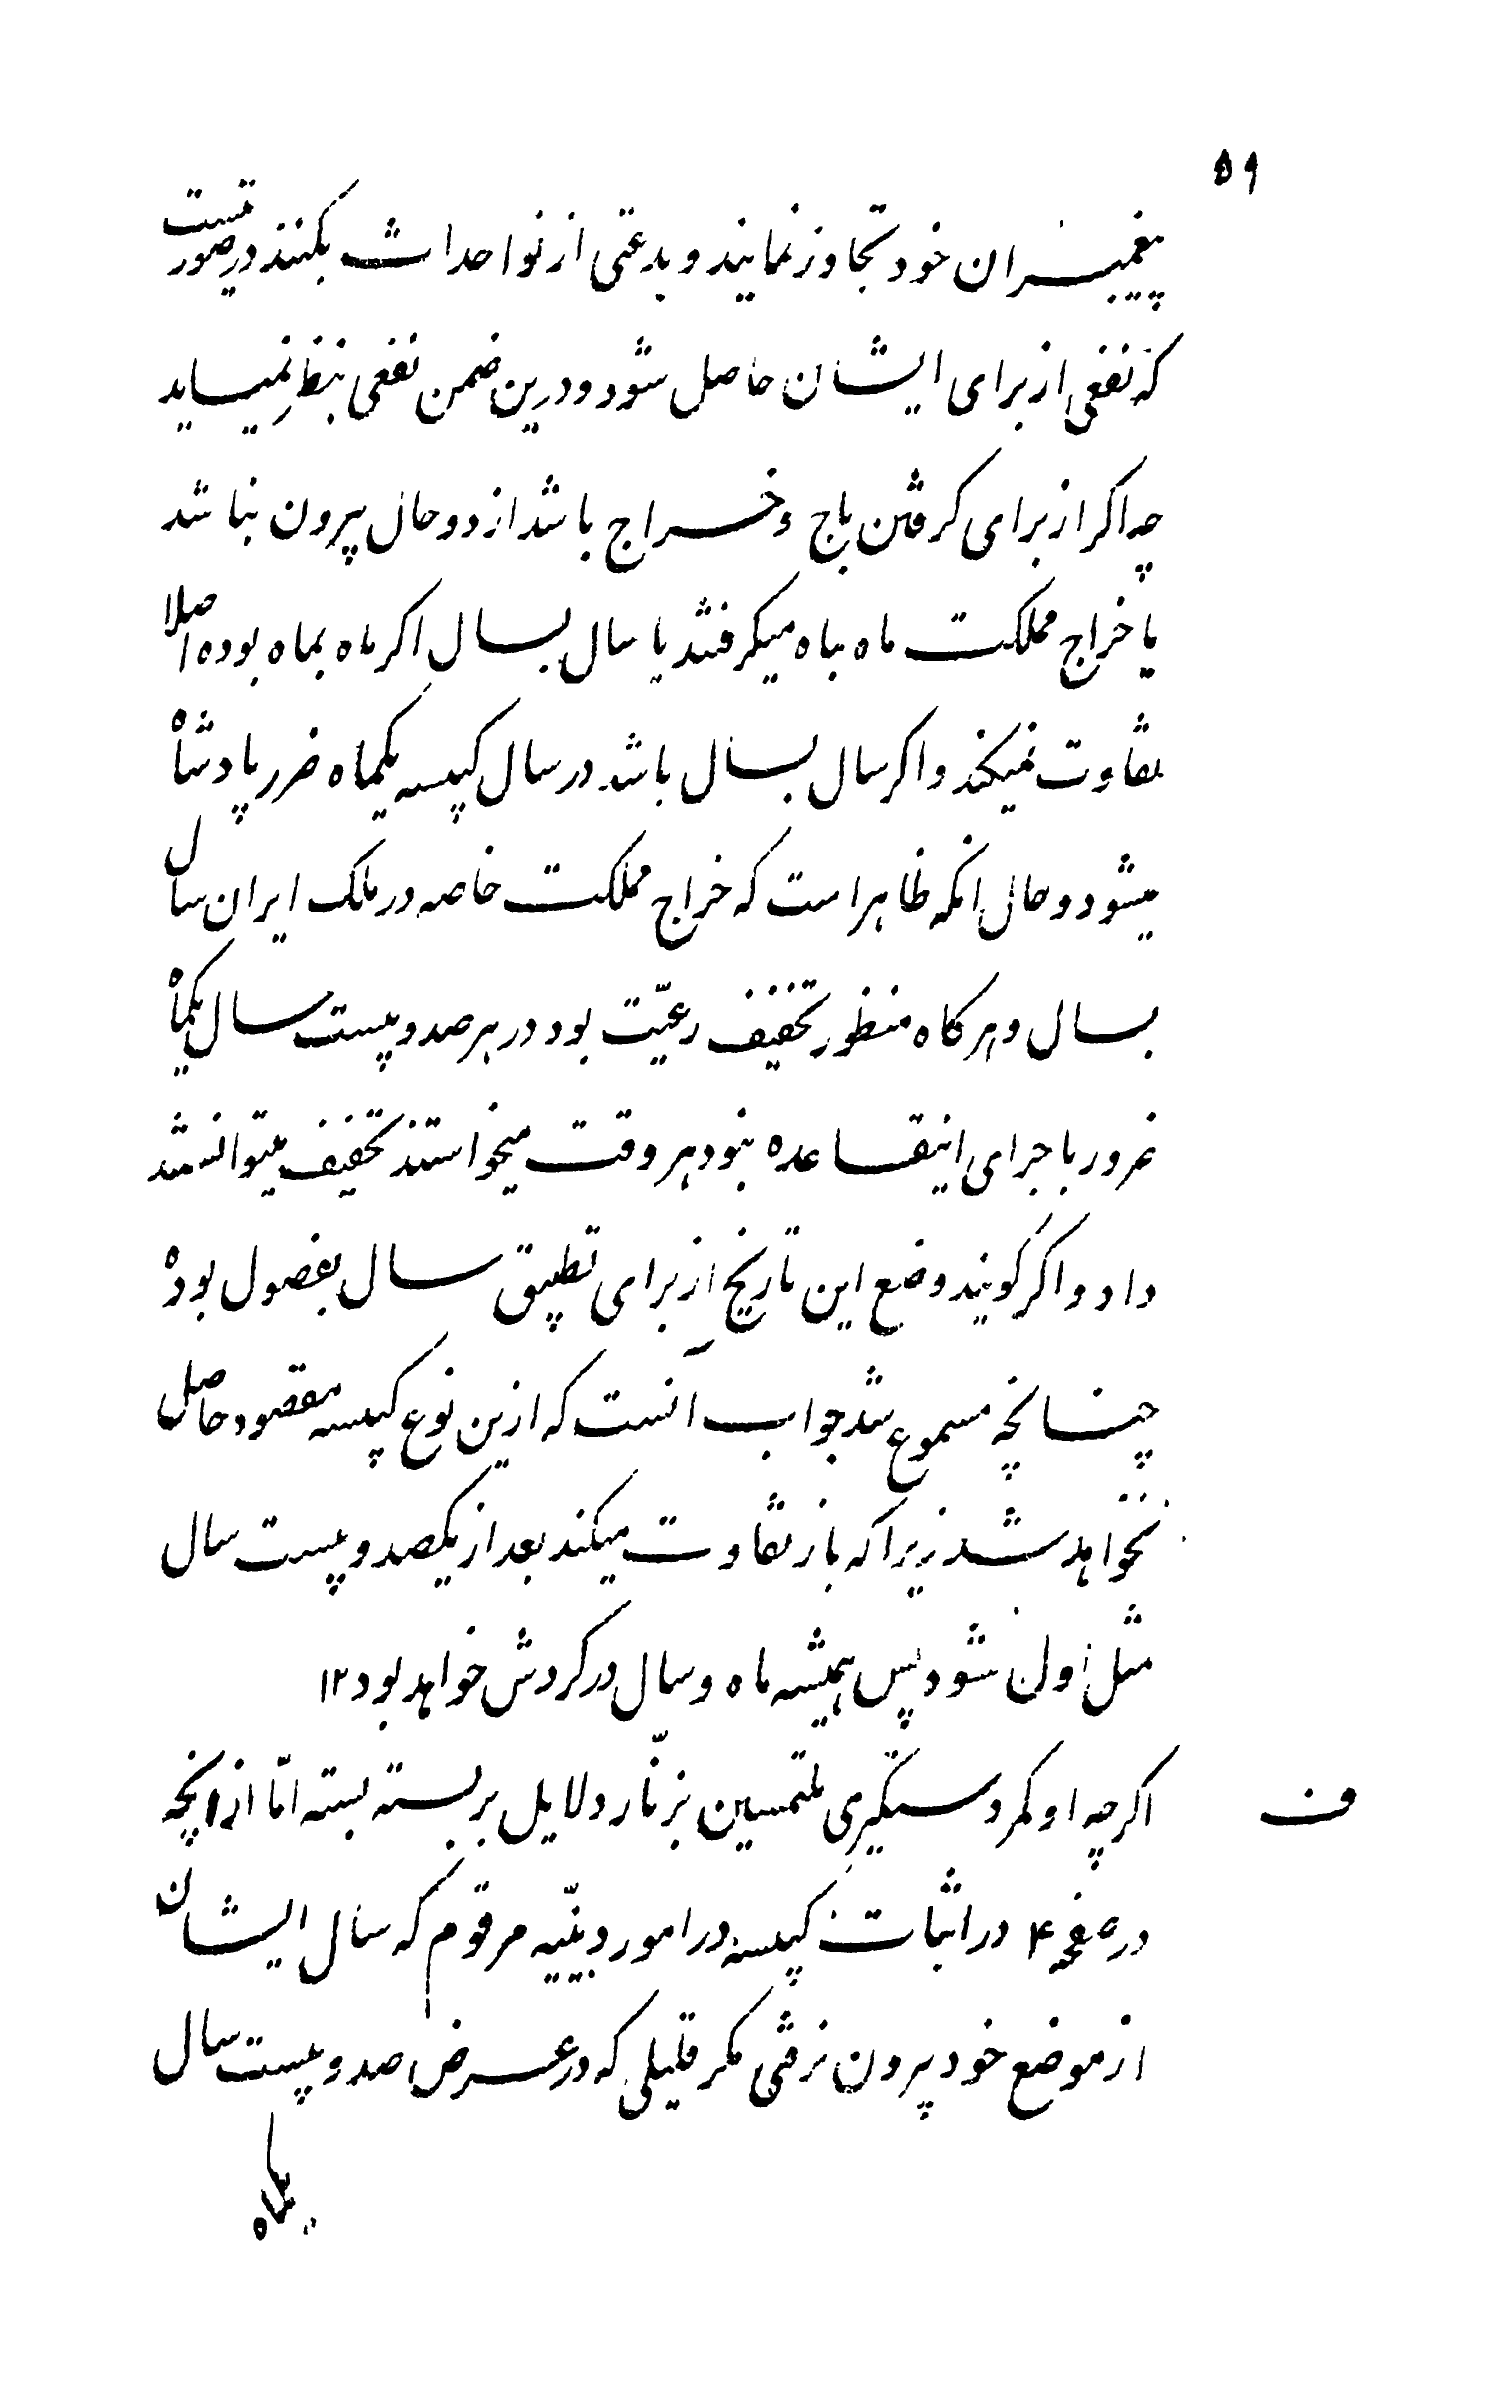 ۵۹
پیغمبران خود تجاوز نمایند و بدعتی از نو احداث بکنند درصورتیست
که نفعی از برای ایشان حاصل شود و درین ضمن نفعی بنظر نمیاید
چه اکر از برای کرفتن باج و خراج باشد از دو حال بیرون نباشد
یا خراج مملکت ماه بماه میکرفتند یا سال بسال اکر ماه بماه بوده اصلا
تفاوت نمیکند و اکر سال بسال باشد در سال کبیسه یکماه ضرر پادشاه
میشود و حال انکه ظاهر است که خراج مملکت خاصه در ملک ایران سال
بسال و هرکاه منظور تخفیف رعیّت بود در هر صد و بیست سال یکماه
ضرور باجرای اینقاعده نبود هر وقت میخواستند تخفیف میتوانستند
داد و اکر کویند وضع این تاریخ از برای تطبیق سال بفصول بوده
چنانچه مسموع شد جواب آنست که ازین نوع کبیسه مقصود حاصل
نخواهد شد زیرا که باز تفاوت میکند بعد از یکصد و بیست سال
مثل اول شود پس همیشه ماه و سال در کردش خواهد بود ۱۲
ف اکرچه او کمر دستکیری ملتمسین بزنّار دلایل بر بسته بسته امّا از انچه
در صفحه ۴ در اثبات کبیسه در امور دینیّه مرقوم که سال ایشان
از موضع خود بیرون نرفتی مکر قلیلی که در عرض صد و بیست سال
یکماه